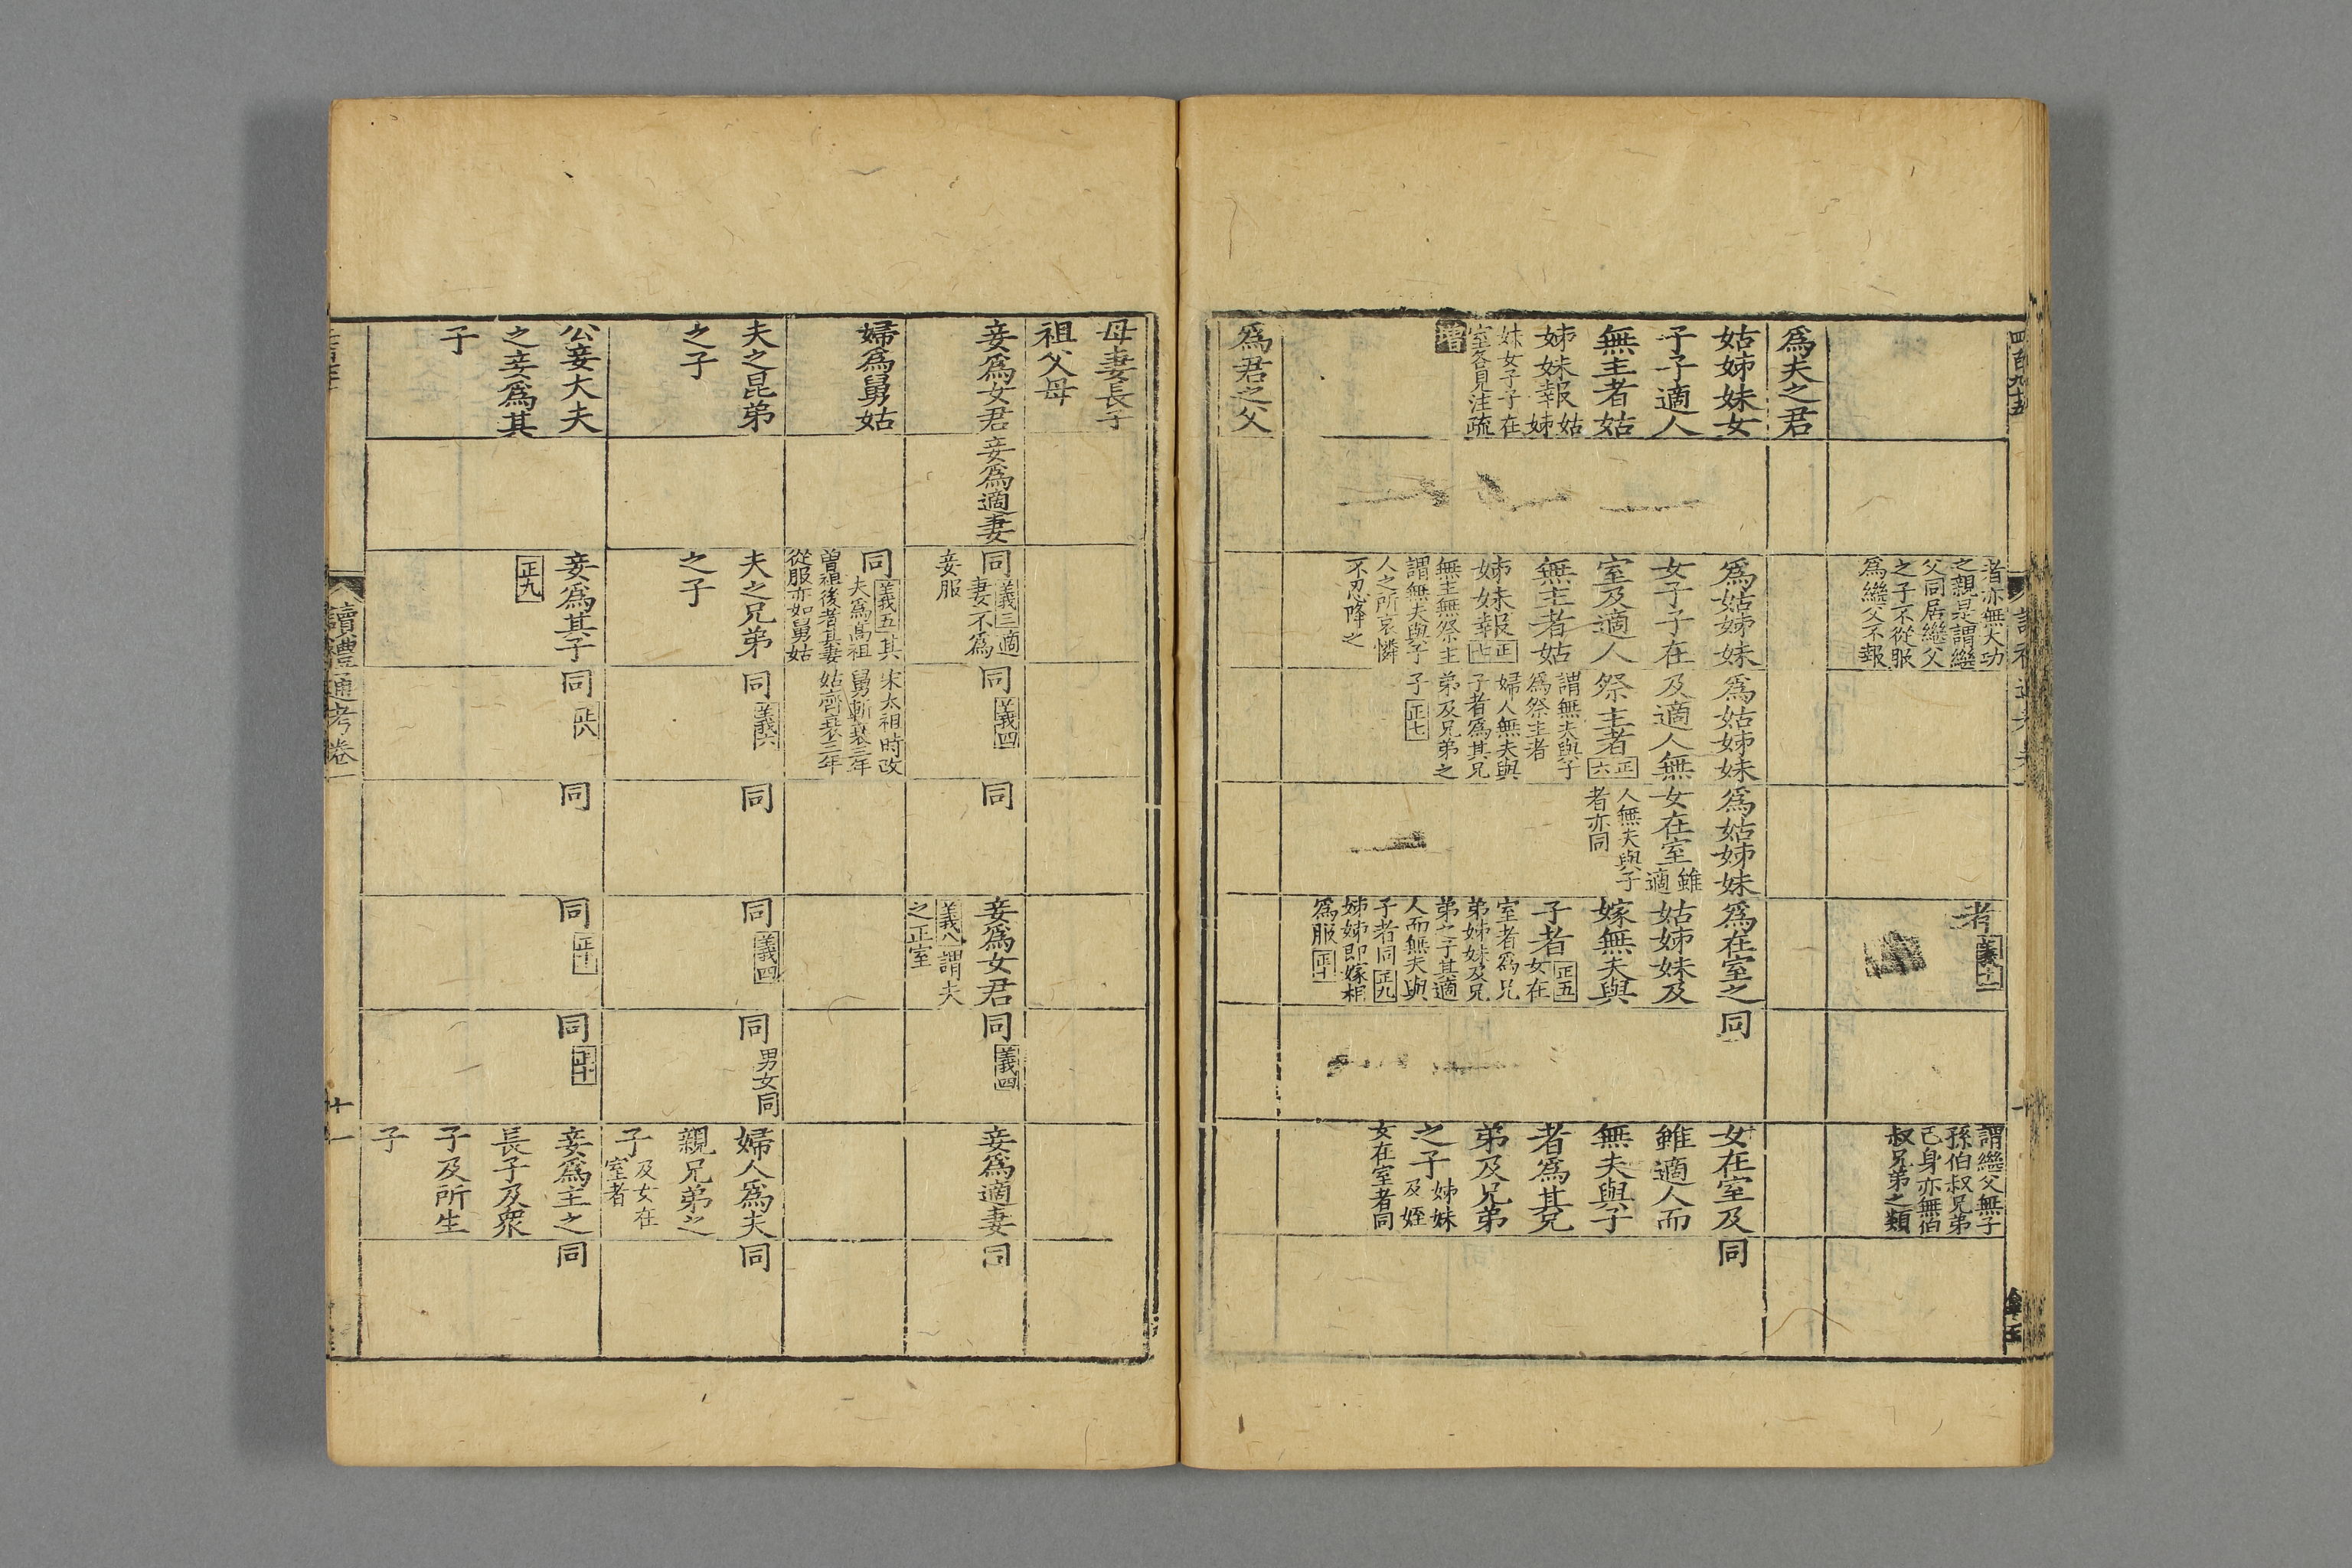 四百九十五
者亦無大功
之親是謂繼
父同居繼父
之子不從服
爲繼父不報
者義十一
謂繼父無子
孫伯叔兄弟
己身亦無伯
叔兄弟之類
爲夫之君
姑姊妹女
子子適人
無主者姑
姊妹報姑姊
妹女子子在
室各見注疏
增
爲姑姊妹
女子子在
室及適人
無主者姑
姊妹報正七
無主無祭主
謂無夫與子
人之所哀憐
不忍降之
爲姑姊妹
及適人無
祭主者正六
謂無夫與子
爲祭主者
婦人無夫與
子者爲其兄
弟及兄弟之
子正七
爲姑姊妹
女在室雖適
人無夫與子
者亦同
爲在室之
姑姊妹及
嫁無夫與
子者正五女在
室者爲兄
弟姊妹及兄
弟之子其適
人而無夫與
子者同正九
姊姊即嫁相
爲服正十
同
女在室及
雖適人而
無夫與子
者爲其兄
弟及兄弟
之子姊妹及姪
女在室者同
同
爲君之父
母妻長子
祖父母
妾爲女君
妾爲適妻
同義三適
妻不爲
妾服
同義四
同
妾爲女君
義八謂夫
之正室
同義四
妾爲適妻
同
婦爲舅姑
同義五其
夫爲高祖
曾祖後者其妻
從服亦如舅姑
宋太祖時改
舅斬衰三年
姑齊衰三年
夫之昆弟
之子
夫之兄弟
之子
同義六
同
同義四
同男女同
婦人爲夫
親兄弟之
子及女在
室者
同
公妾大夫
之妾爲其
子
妾爲其子
正九
同正八
同
同正十一
同正十
妾爲主之
長子及衆
子及所生
子
同
讀禮通考卷一
十一